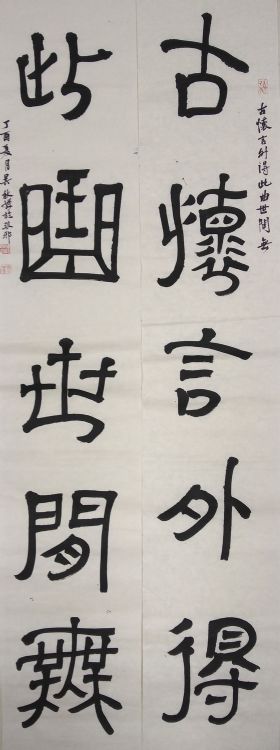 古懷言外得
古懷言外得此曲世間無
此曲世間無
丁酉夏月吴